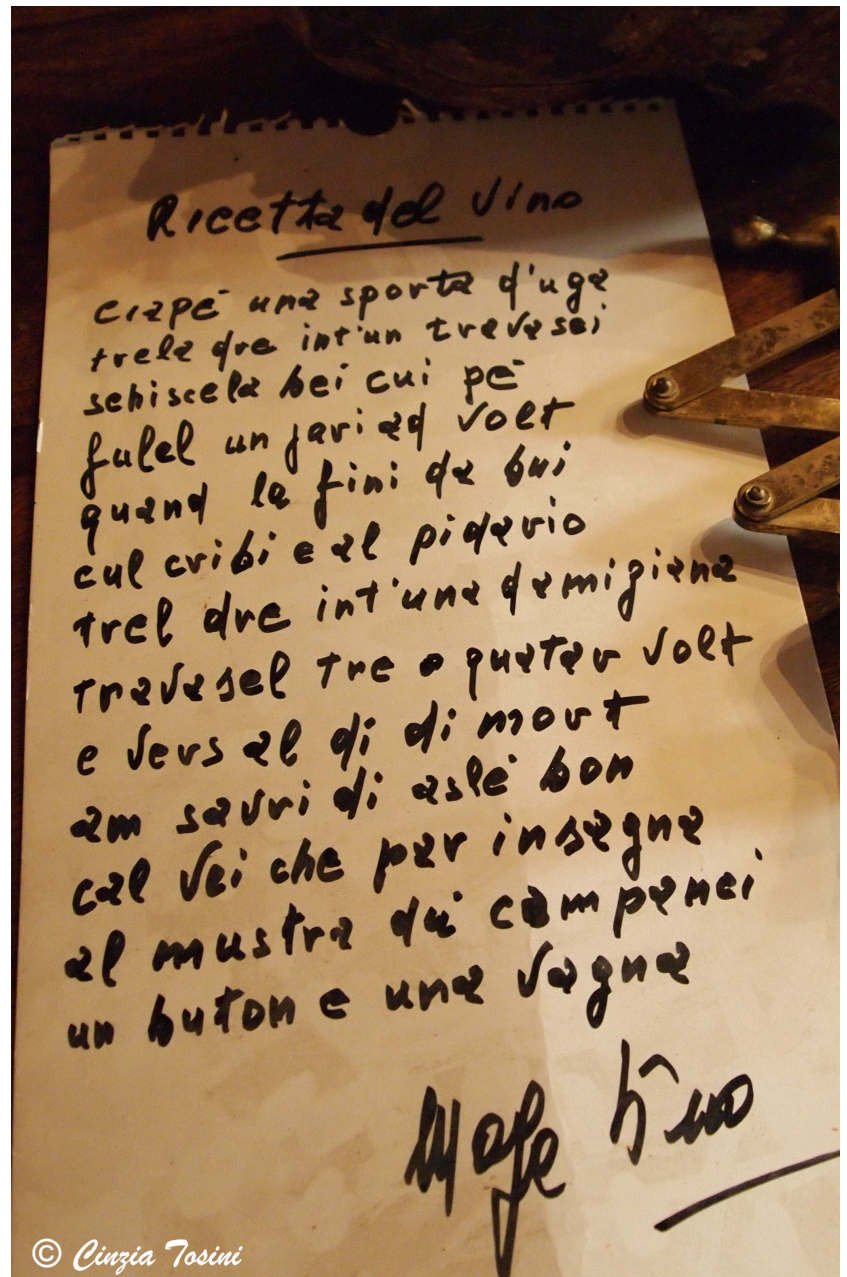 Ricetta del vino
ciapé una sporta d'uga
trela dre int'un travasei
schiscela bei cui pé
fulel un pari ad volt
quand la fini da bui
cul cribi e al pidario
trel dre int'una damigiana
travasel tre o quatar volt
e vers al di di mort
am savri di aslé bon
cal vei che par insegna
al mustra du campanei
un buton e una vagna
© Cinzia Tosini